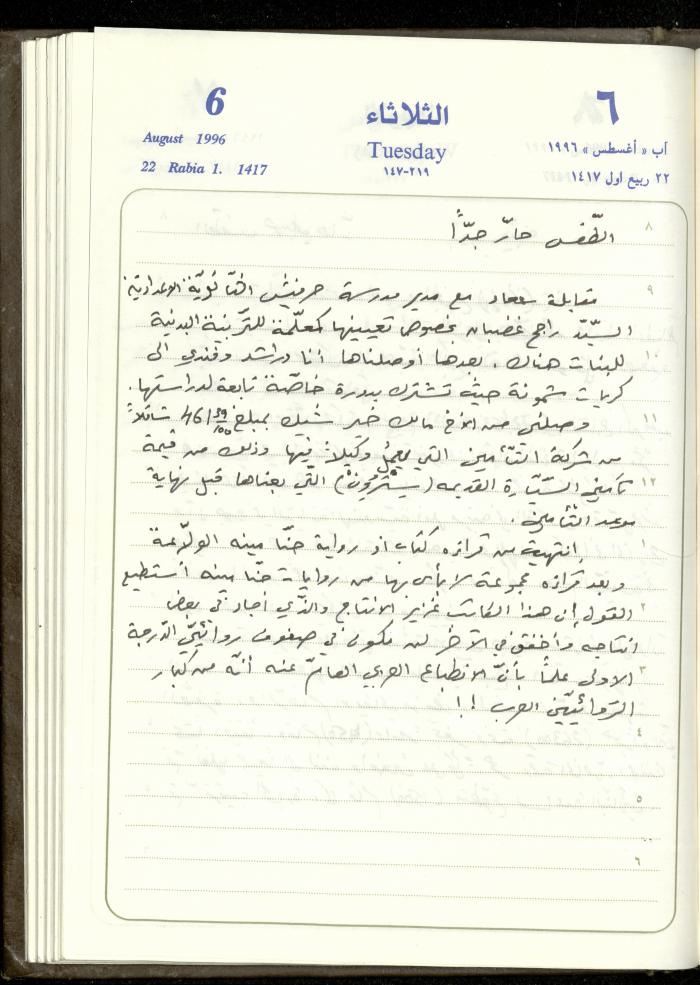 6
August 1996
22 Rabia 1. 1417
الثلاثاء
Tuesday
٢١٩-١٤٧
٦
آب « أغسطس » ١٩٩٦
٢٢ ربيع اول ١٤١٧
٨
الطّقس حارّ جدّاً
٩
مقابلة سعاد مع مدير مدرسة حرفيش الثّانويّة الاعداديّة
السيّد راجح غضبان بخصوص تعيينها كمعلّمة للتّربية البدنية
للبنات هناك. بعدها أوصلناها أنا وراشد وفندي الى
كريات شمونة حيث تشترك بدورة خاصّة تابعة لدراستها.
١١
وصلني من الأخ مالك خير شيك بمبلغ 461 39/00 شاقلاً
من شركة التّأمين التي يعمل وكيلاً فيها وذلك من قيمة
١٢
تأمين السّيّارة القديمه (سيتروين) الّتي بعناها قبل نهاية
موعد التّأمين.
١
إنتهيت من قراءه كتاب او رواية حنّا مينه الولّاعة
وبعد قراءه مجموعة لا بأس بها من روايات حنّا مينه أستطيع
٢
القول إن هذا الكاتب غزير الانتاج والّذي أجاد في بعض
انتاجه وأخفق في الآخر لن يكون في صفوف روائيّي الدّرجة
٣
الاولى علماً بأنّ الانطباع العربي العامّ عنه أنّه من كبار
الرّوائيّين العرب !!
٤
٥
٦